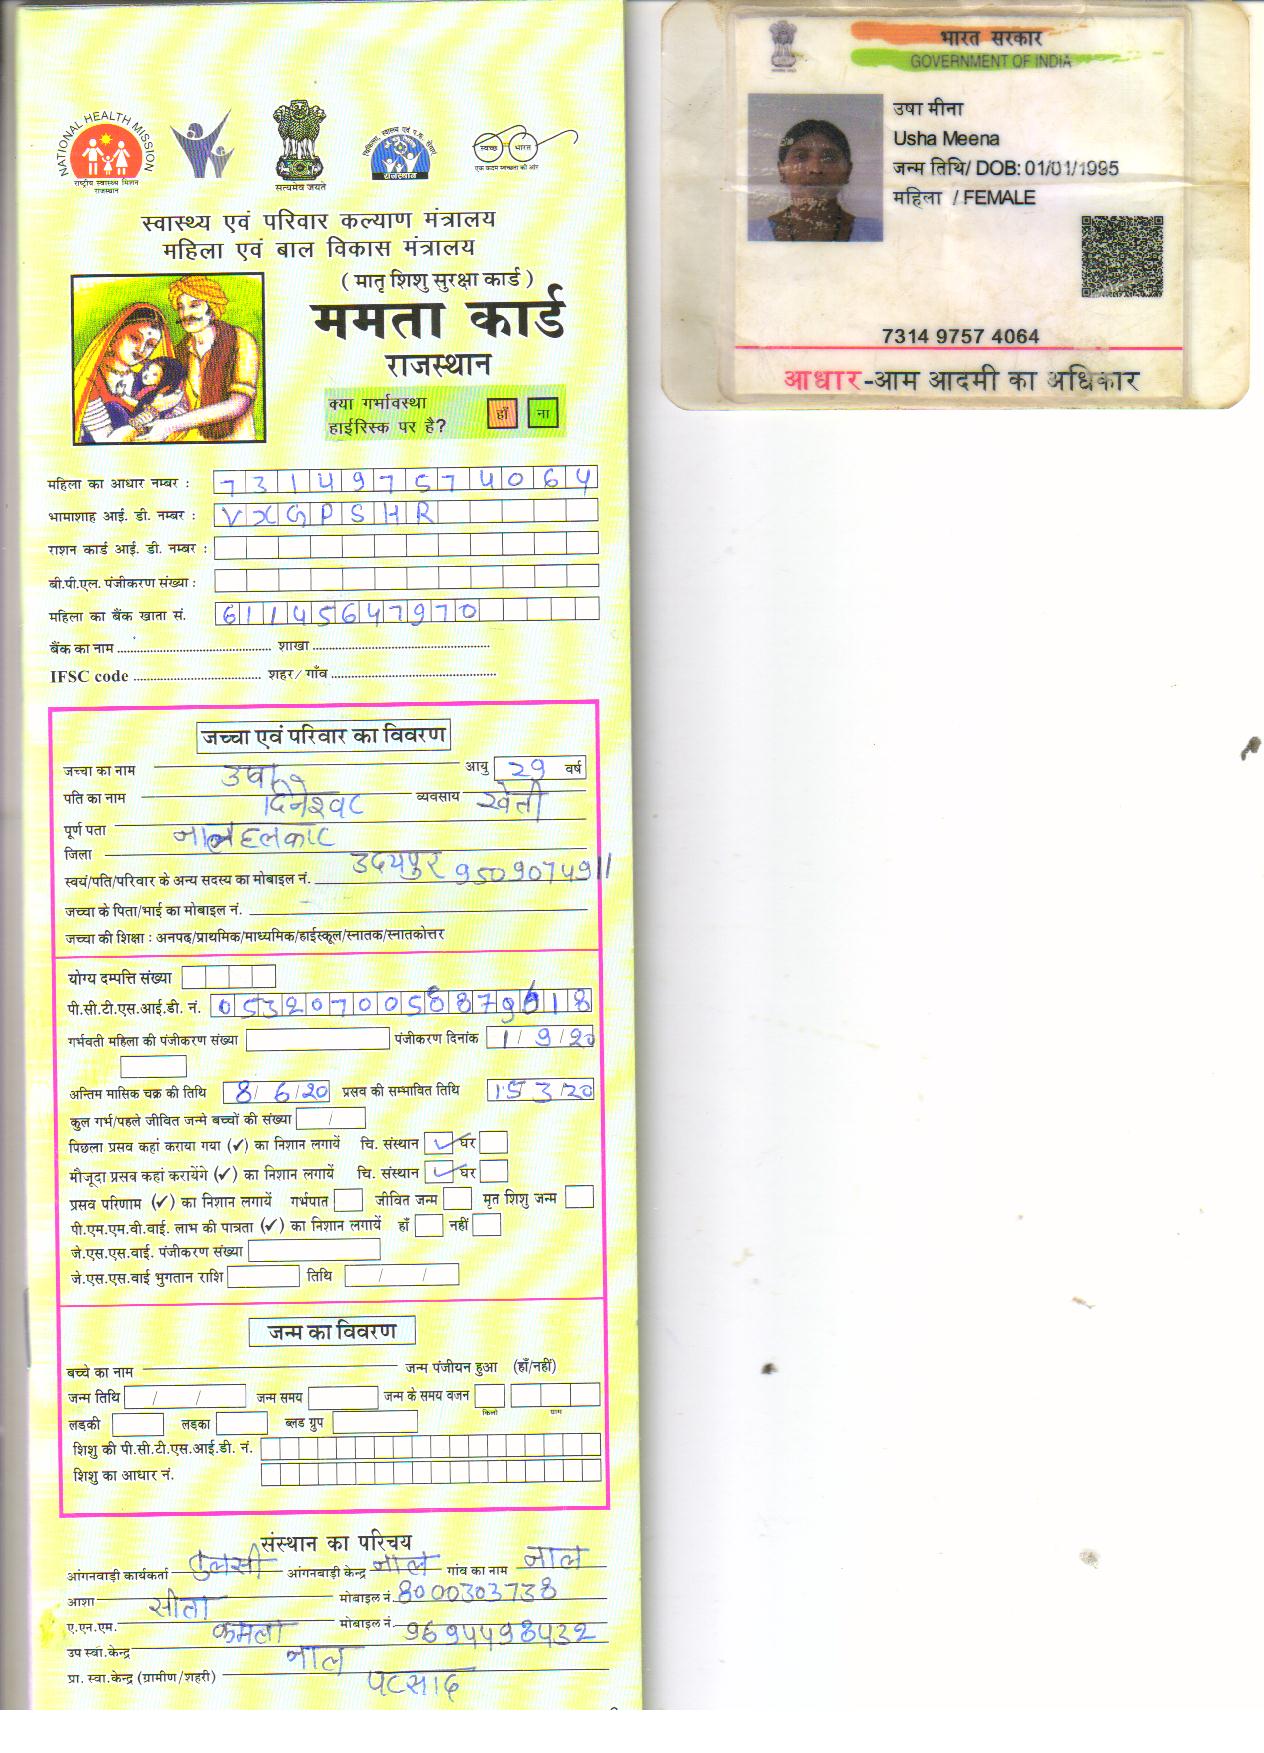 NATIONAL HEALTH MISSION
राष्ट्रीय स्वास्थ्य मिशन
राजस्थान
सत्यमेव जयते
राजस्थान
स्वच्छ भारत
एक कदम स्वच्छता की ओर
स्वास्थ्य एवं परिवार कल्याण मंत्रालय
महिला एवं बाल विकास मंत्रालय
( मातृ शिशु सुरक्षा कार्ड )
ममता कार्ड
राजस्थान
क्या गर्भावस्था
हाईरिस्क पर है? हाँ ना
महिला का आधार नम्बर : 731497574064
भामाशाह आई. डी. नम्बर : VXGPSHR
राशन कार्ड आई. डी. नम्बर :
बी.पी.एल. पंजीकरण संख्या :
महिला का बैंक खाता सं. 61145647970
बैंक का नाम शाखा
IFSC code शहर/गाँव
जच्चा एवं परिवार का विवरण
जच्चा का नाम उषा आयु 29 वर्ष
पति का नाम दिनेश्वर व्यवसाय खेती
पूर्ण पता
जिला उदयपुर
स्वयं/पति/परिवार के अन्य सदस्य का मोबाइल नं. 9509074911
जच्चा के पिता/भाई का मोबाइल नं.
जच्चा की शिक्षा : अनपढ/प्राथमिक/माध्यमिक/हाईस्कूल/स्नातक/स्नातकोत्तर
योग्य दम्पत्ति संख्या
पी.सी.टी.एस.आई.डी. नं.
गर्भवती महिला की पंजीकरण संख्या पंजीकरण दिनांक 1/9/20
अन्तिम मासिक चक्र की तिथि 8/6/20 प्रसव की सम्भावित तिथि 15 3/20
कुल गर्भ/पहले जीवित जन्मे बच्चों की संख्या /
पिछला प्रसव कहां कराया गया (✓) का निशान लगायें चि. संस्थान ✓ घर
मौजूदा प्रसव कहां करायेंगे (✓) का निशान लगायें चि. संस्थान ✓ घर
प्रसव परिणाम (✓) का निशान लगायें गर्भपात जीवित जन्म मृत शिशु जन्म
पी.एम.एम.वी.वाई. लाभ की पात्रता (✓) का निशान लगायें हाँ नहीं
जे.एस.एस.वाई. पंजीकरण संख्या
जे.एस.एस.वाई भुगतान राशि तिथि / /
जन्म का विवरण
बच्चे का नाम जन्म पंजीयन हुआ (हाँ/नहीं)
जन्म तिथि / / जन्म समय जन्म के समय वजन
किलो ग्राम
लड़की लड़का ब्लड ग्रुप
शिशु की पी.सी.टी.एस.आई.डी. नं.
शिशु का आधार नं.
संस्थान का परिचय
आंगनवाड़ी कार्यकर्ता तुलसी आंगनबाड़ी केन्द्र जाल गांव का नाम जाल
आशा सीता मोबाइल नं. 8000303738
ए.एन.एम. कमला मोबाइल नं. 9694498432
उप स्वा.केन्द्र जाल
प्रा. स्वा.केन्द्र (ग्रामीण/शहरी)
भारत सरकार
GOVERNMENT OF INDIA
उषा मीना
Usha Meena
जन्म तिथि/ DOB: 01/01/1995
महिला / FEMALE
7314 9757 4064
आधार-आम आदमी का अधिकार